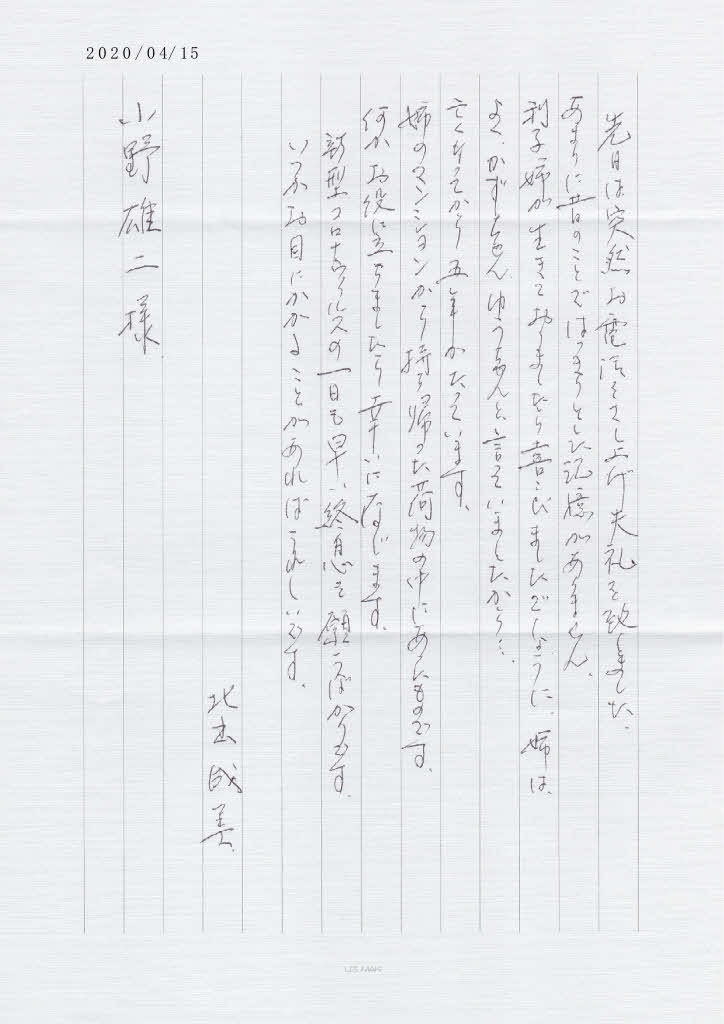 2020/04/15
先日は突然お電話をさし上げ失礼を致しました。
あまりに昔のことではっきりとした記憶がありません。
利子姉が生きておりましたら喜こびましたでしょうに、姉は、
よく、かずちゃん、ゆうちゃんと、言っていましたから…。
亡くなってから五年がたっています。
姉のマンションから持ち帰った荷物の中にあったものです。
何かお役に立ちましたら幸いに存じます。
新型コロナウイルスの一日も早い終息を願うばかりです。
いつかお目にかかることがあればうれしいです。
北出成美
小野雄二様